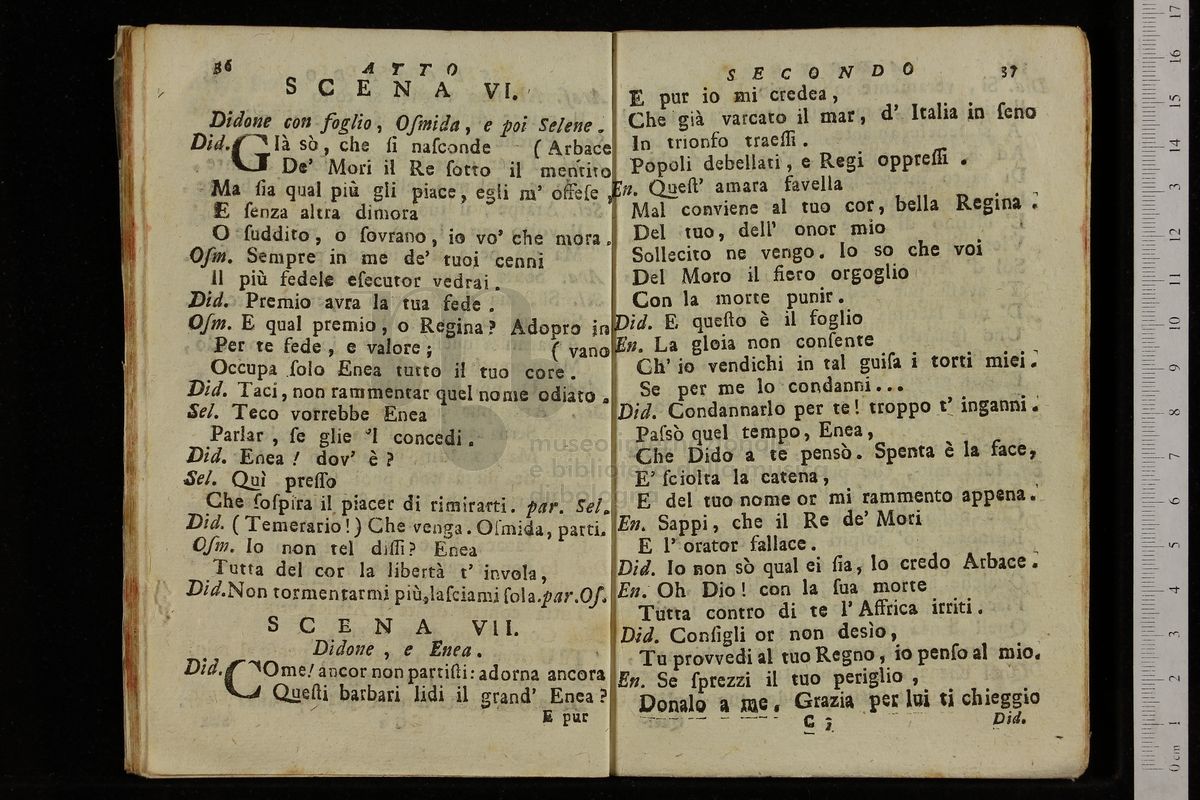 36 ATTO
SCENA VI.
Didone con foglio, Oſmida, e poi Selene.
Did. GIà sò, che ſi naſconde ( Arbace
De' Mori il Re ſotto il mentito
Ma ſia qual più gli piace, egli m' offeſe,
E ſenza altra dimora
O ſuddito, o ſovrano, io vo' che mora.
Oſm. Sempre in me de' tuoi cenni
Il più fedele eſecutor vedrai.
Did. Premio avra la tua fede.
Oſm. E qual premio, o Regina? Adopro in
Per te fede, e valore; ( vano
Occupa ſolo Enea tutto il tuo core.
Did. Taci, non rammentar quel nome odiato.
Sel. Teco vorrebbe Enea
Parlar, ſe glie 'l concedi.
Did. Enea! dov' è?
Sel. Quì preſſo
Che ſoſpira il piacer di rimirarti. par. Sel.
Did. (Temerario!) Che venga. Oſmida, parti.
Oſm. Io non tel diſſi? Enea
Tutta del cor la libertà t' invola,
Did. Non tormentarmi più, laſciami ſola. par. Oſ.
SCENA VII.
Didone, e Enea.
Did. COme! ancor non partiſti: adorna ancora
Queſti barbari lidi il grand' Enea?
E pur
SECONDO 37
E pur io mi credea,
Che già varcato il mar, d' Italia in ſeno
In trionfo traeſſi.
Popoli debellati, e Regi oppreſſi.
En. Queſt' amara favella
Mal conviene al tuo cor, bella Regina.
Del tuo, dell' onor mio
Sollecito ne vengo. Io so che voi
Del Moro il fiero orgoglio
Con la morte punir.
Did. E queſto è il foglio
En. La gloia non conſente
Ch' io vendichi in tal guiſa i torti miei.
Se per me lo condanni...
Did. Condannarlo per te! troppo t' inganni.
Paſsò quel tempo, Enea,
Che Dido a te pensò. Spenta è la face,
E' ſciolta la catena,
E del tuo nome or mi rammento appena.
En. Sappi, che il Re de' Mori
E l' orator fallace.
Did. Io non sò qual ei ſia, lo credo Arbace.
En. Oh Dio! con la ſua morte
Tutta contro di te l' Affrica irriti.
Did. Conſigli or non desìo,
Tu provvedi al tuo Regno, io penſo al mio.
En. Se ſprezzi il tuo periglio,
Donalo a me. Grazia per lui ti chieggio
Did.
museo internazionale
e biblioteca della musica
di bologna